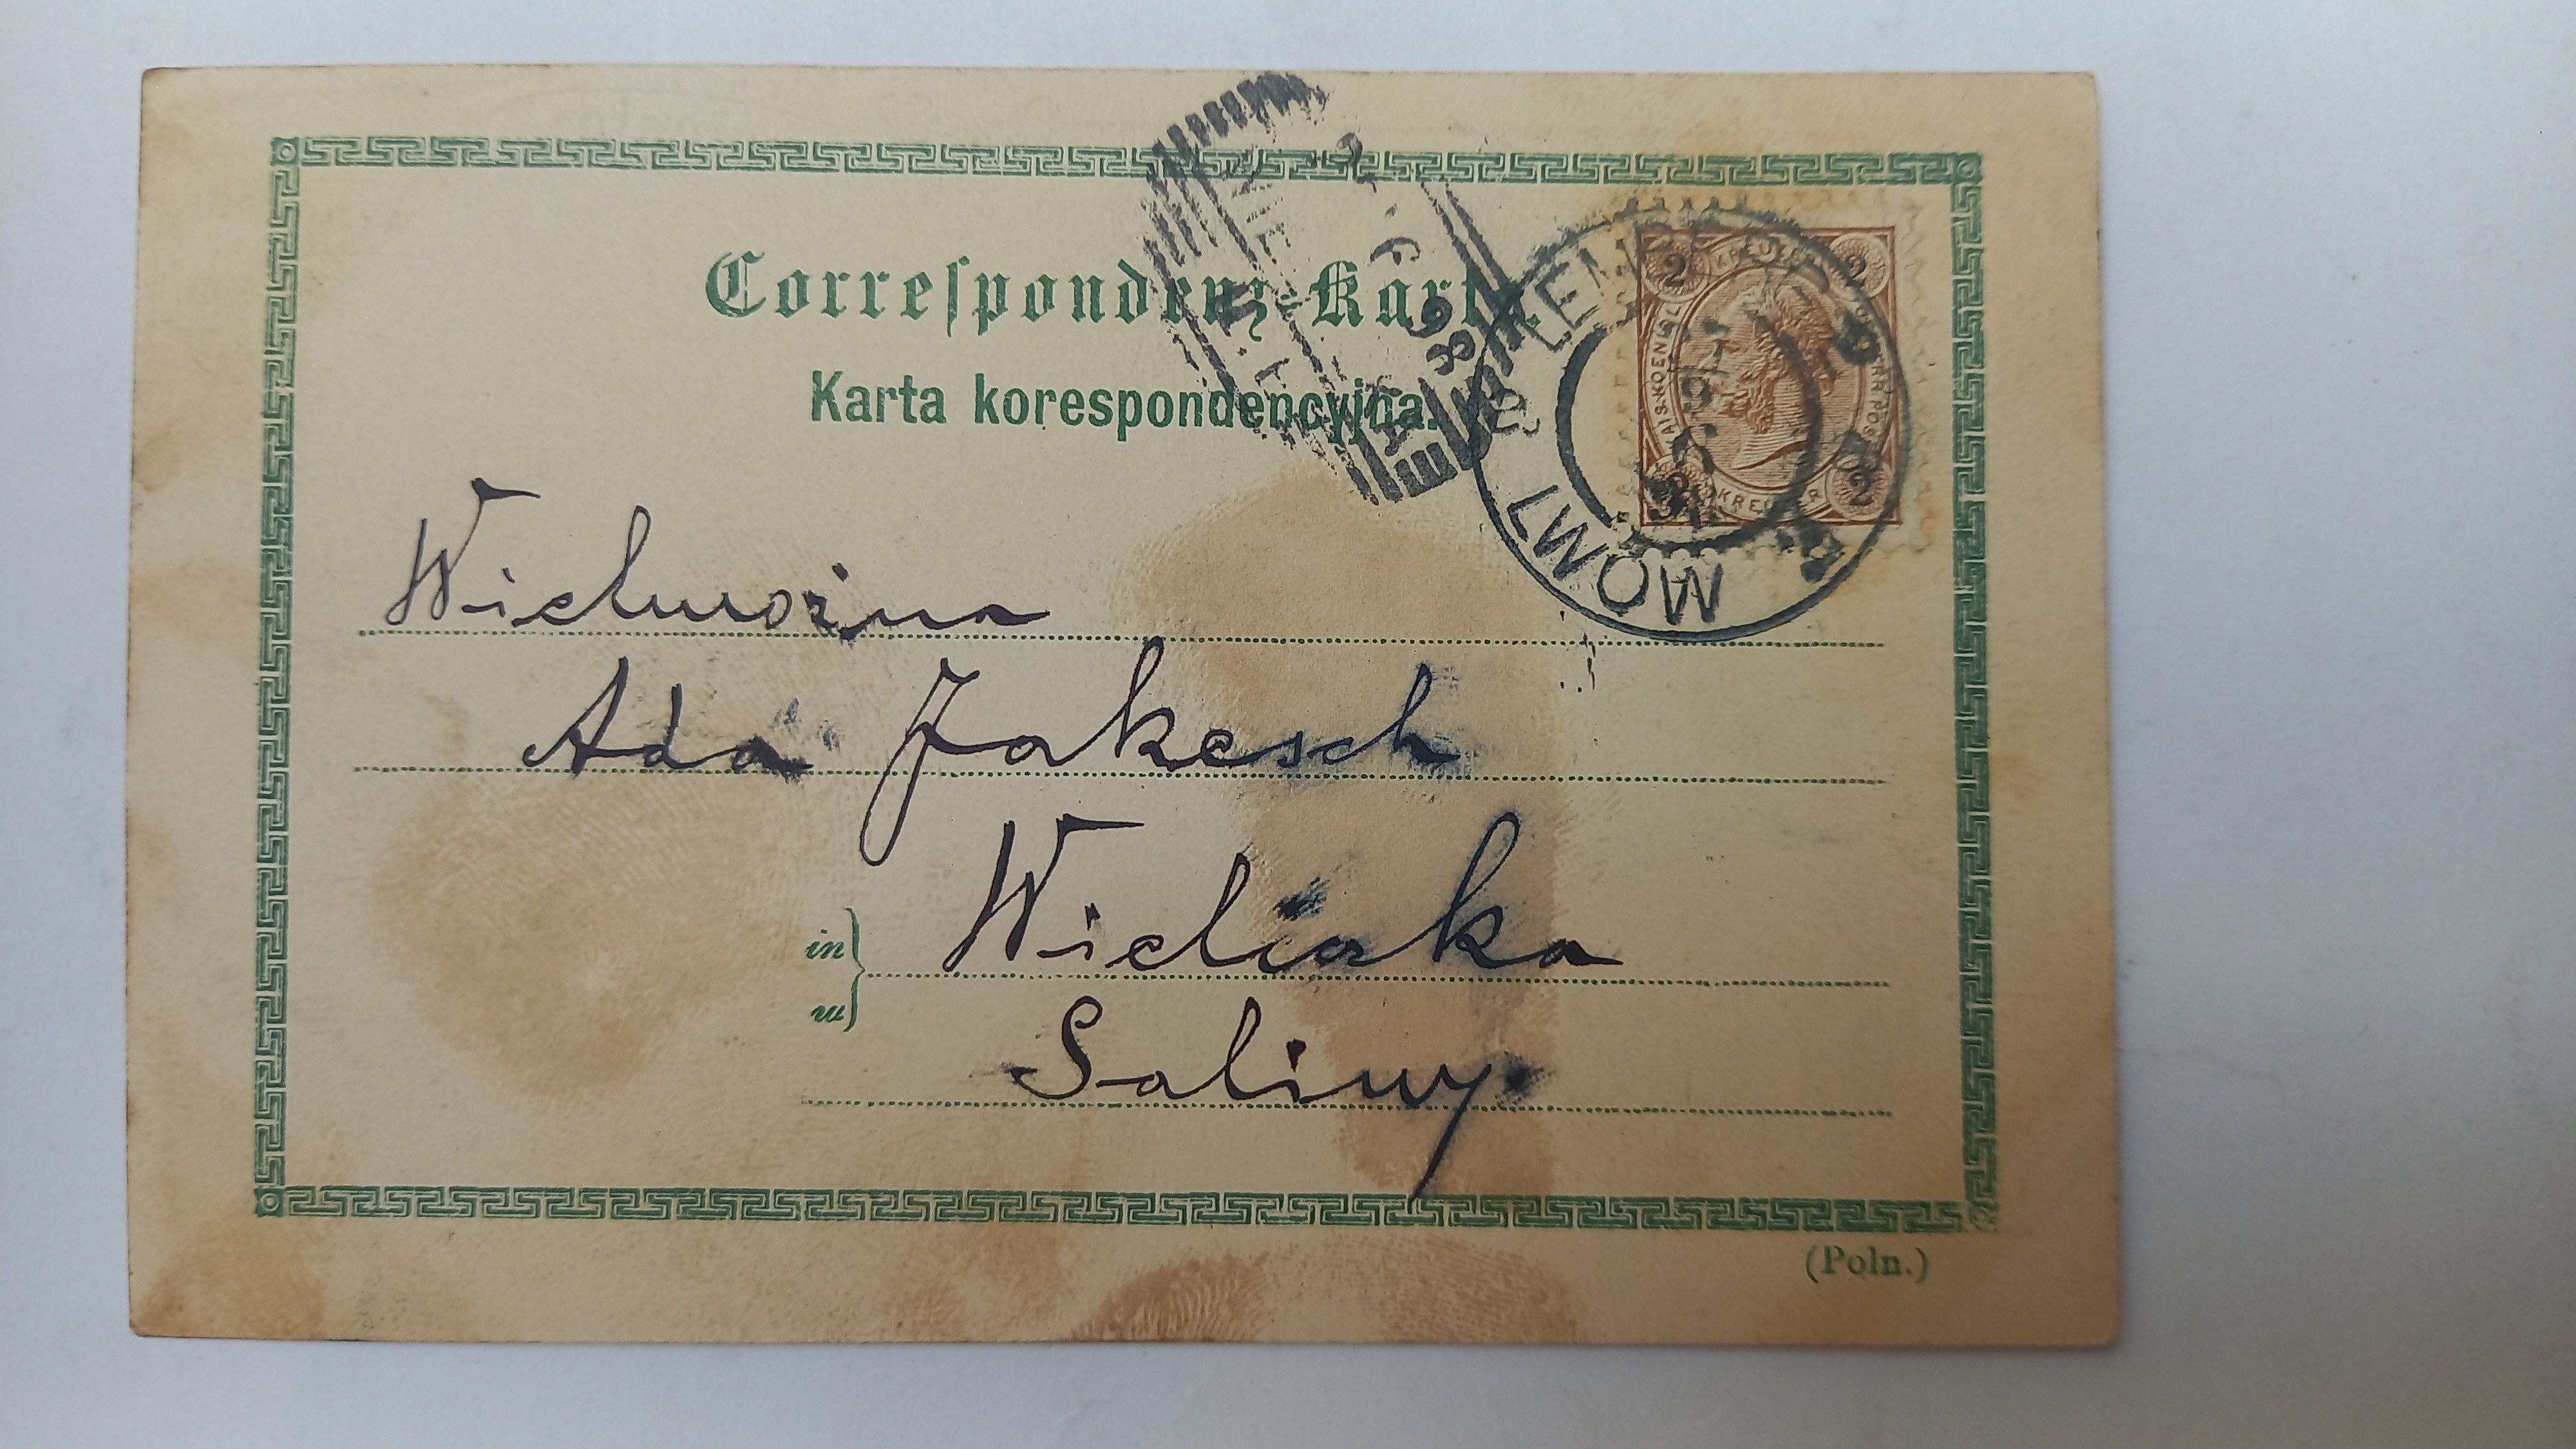 Correspondenz-Karte.
Karta korespondencyjna.
2 KREUZER 2
2 KREUZER 2
LEMBERG
LWÓW
98
Wielmożna
Ada Jakesch
in
w
Wieliczka
Saliny.
(Poln.)